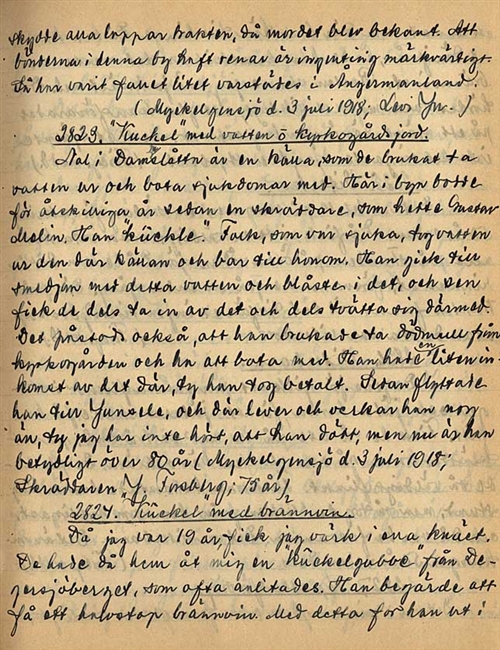 skydde alla lappar trakten, då mordet blev bekant. Att
bönderna i denna by haft renar är ingenting märkvärdigt.
Så har varit fallet litet varstädes i Ångermanland.
(Myckelgensjö d. 3 juli 1918;
2823. "Kückel" med vatten o kyrkogårdsjord.
är en källa, som de brukat ta
vatten ur och bota sjukdomar med. Här i byn bodde
för åtskilliga år sedan en skräddare, som hette Gustav
Melin. Han "küchle". Folk, som var sjuka, tog vatten
ur den där källan och bar till honom. Han gick till
smedjan med detta vatten och blåste i det, och sen
fick de dels ta in av det och dels tvätta sig därmed.
Det påstods också, att han brukade ta dödmull från
kyrkogården och ha att bota med. Han hade en liten in-
komst av det där, ty han tog betalt. Sedan flyttade
han till Junsele, och där lever och verkar han nog
än, ty jag har inte hört, att han dött, men nu är han
betydligt över 80 år (Myckelgensjö d. 3 juli 1918;
Skräddaren J. Forsberg; 75 år)
2824. "Kückel" med brännvin.
Då jag var 19 år, fick jag värk i ena knäet.
De hade då hem åt mig en "kückelgubbe" från De-
gersjöberget, som ofta anlitades. Han begärde att
få ett halvstop brännvin. Med detta for han ut i